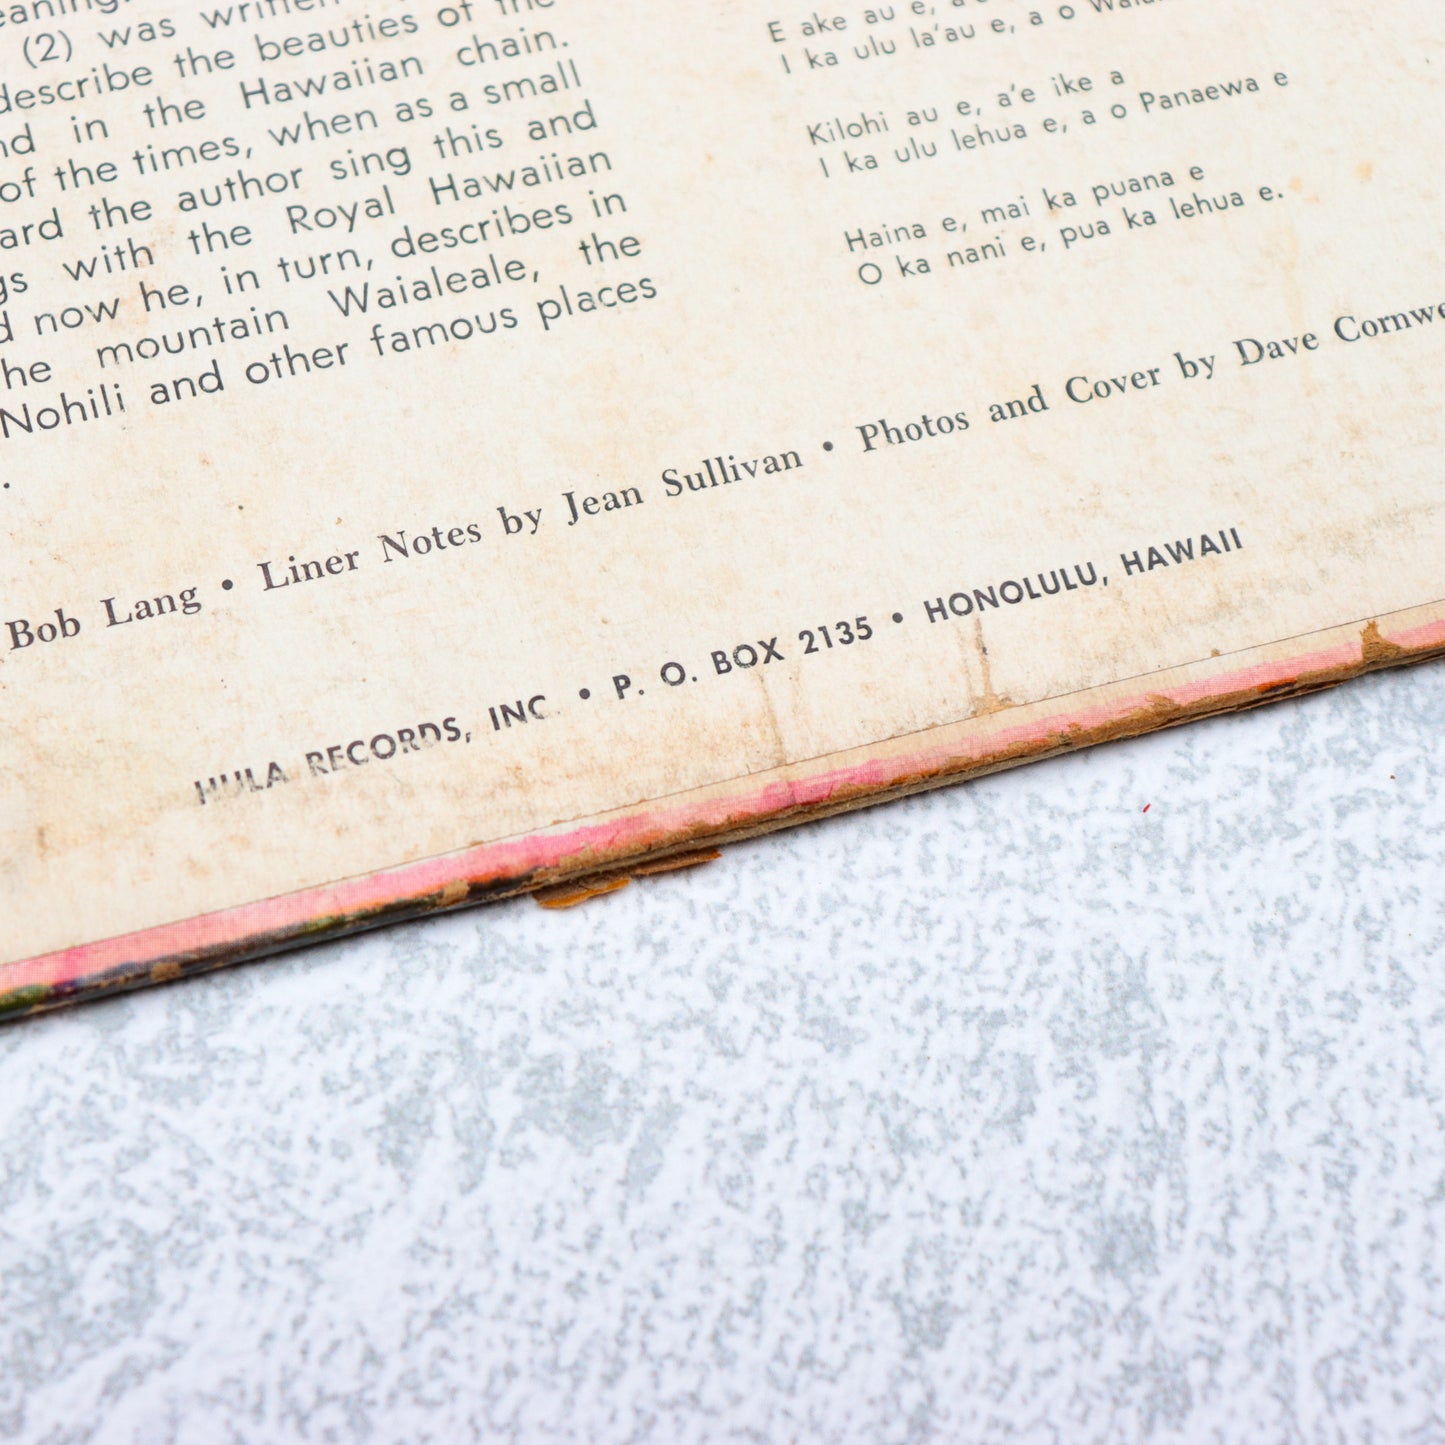 (2) was written
describe the beauties of the
in the Hawaiian chain.
of the times, when as a small
the author sing this and
with the Royal Hawaiian
now he, in turn, describes in
mountain Waialeale, the
Nohili and other famous places
.
E ake au e,
I ka ulu la'au e, a o
Kilohi au e, a'e ike a
I ka ulu lehua e, a o Panaewa e
Haina e, mai ka puana e
O ka nani e, pua ka lehua e.
Bob Lang • Liner Notes by Jean Sullivan • Photos and Cover by Dave
HULA RECORDS, INC. • P. O. BOX 2135 • HONOLULU, HAWAII